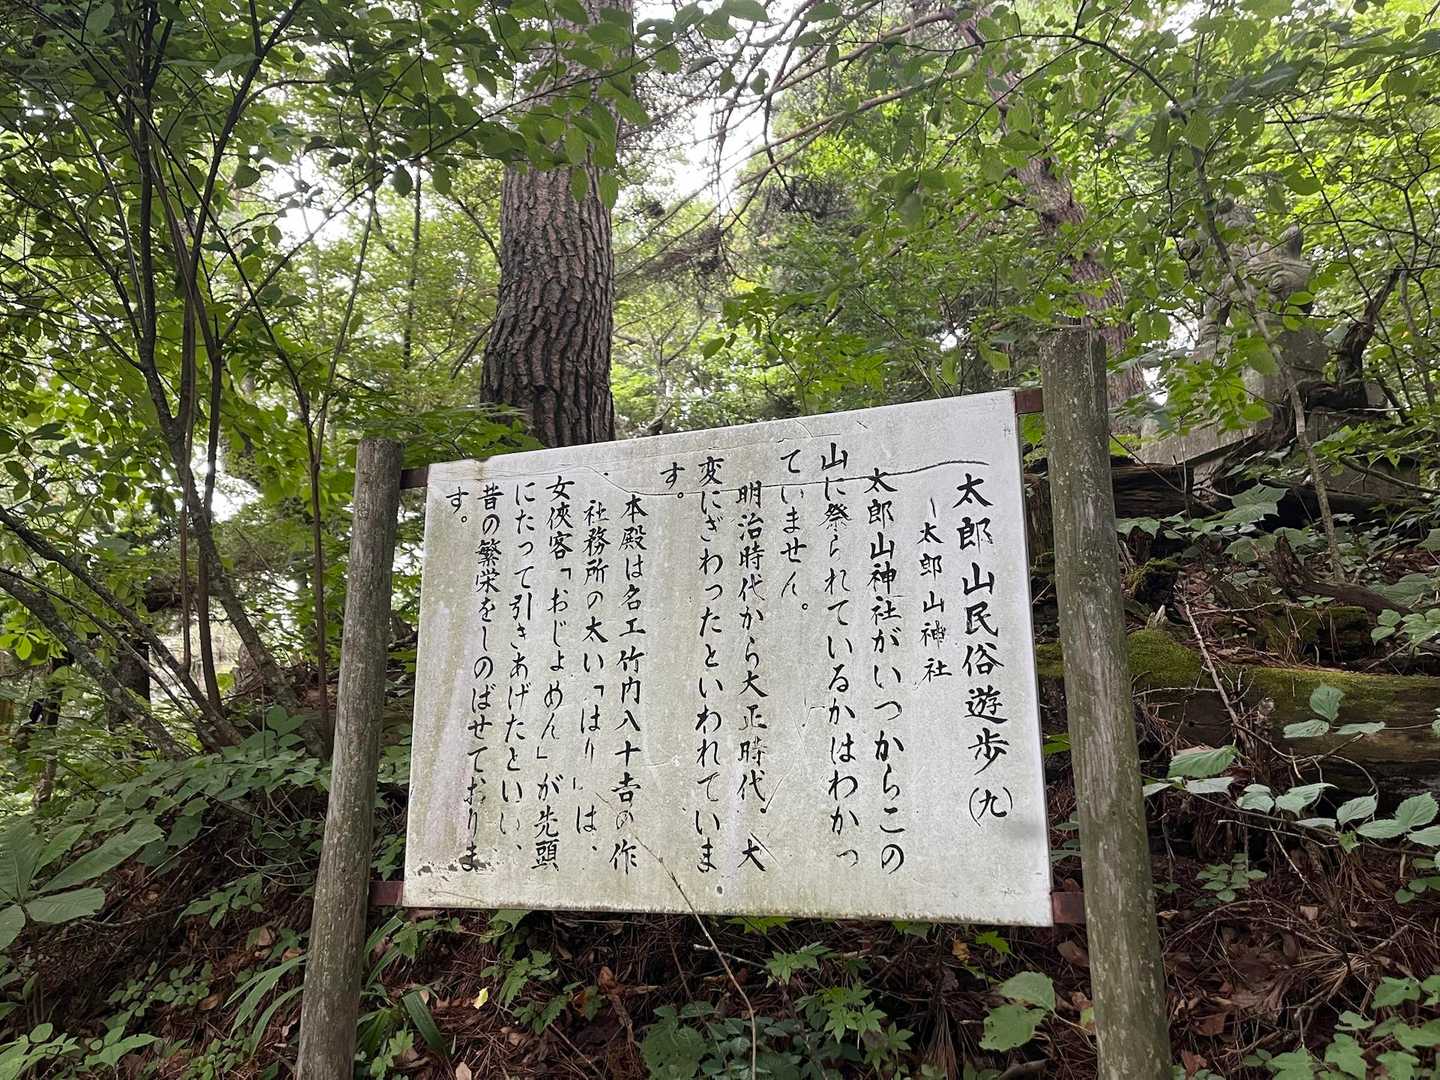 太郎山民俗遊歩(九)
ー太郎山神社
太郎山神社がいつからこの
山に祭られているかはわかっ
ていません。
明治時代から大正時代、大
変にぎわったといわれていま
す。
本殿は名工竹内八十吉の作
社務所の太い「はり」は、
女侠客「おじょめん」が先頭
にたって引きあげたといい、
昔の繁栄をしのばせておりま
す。